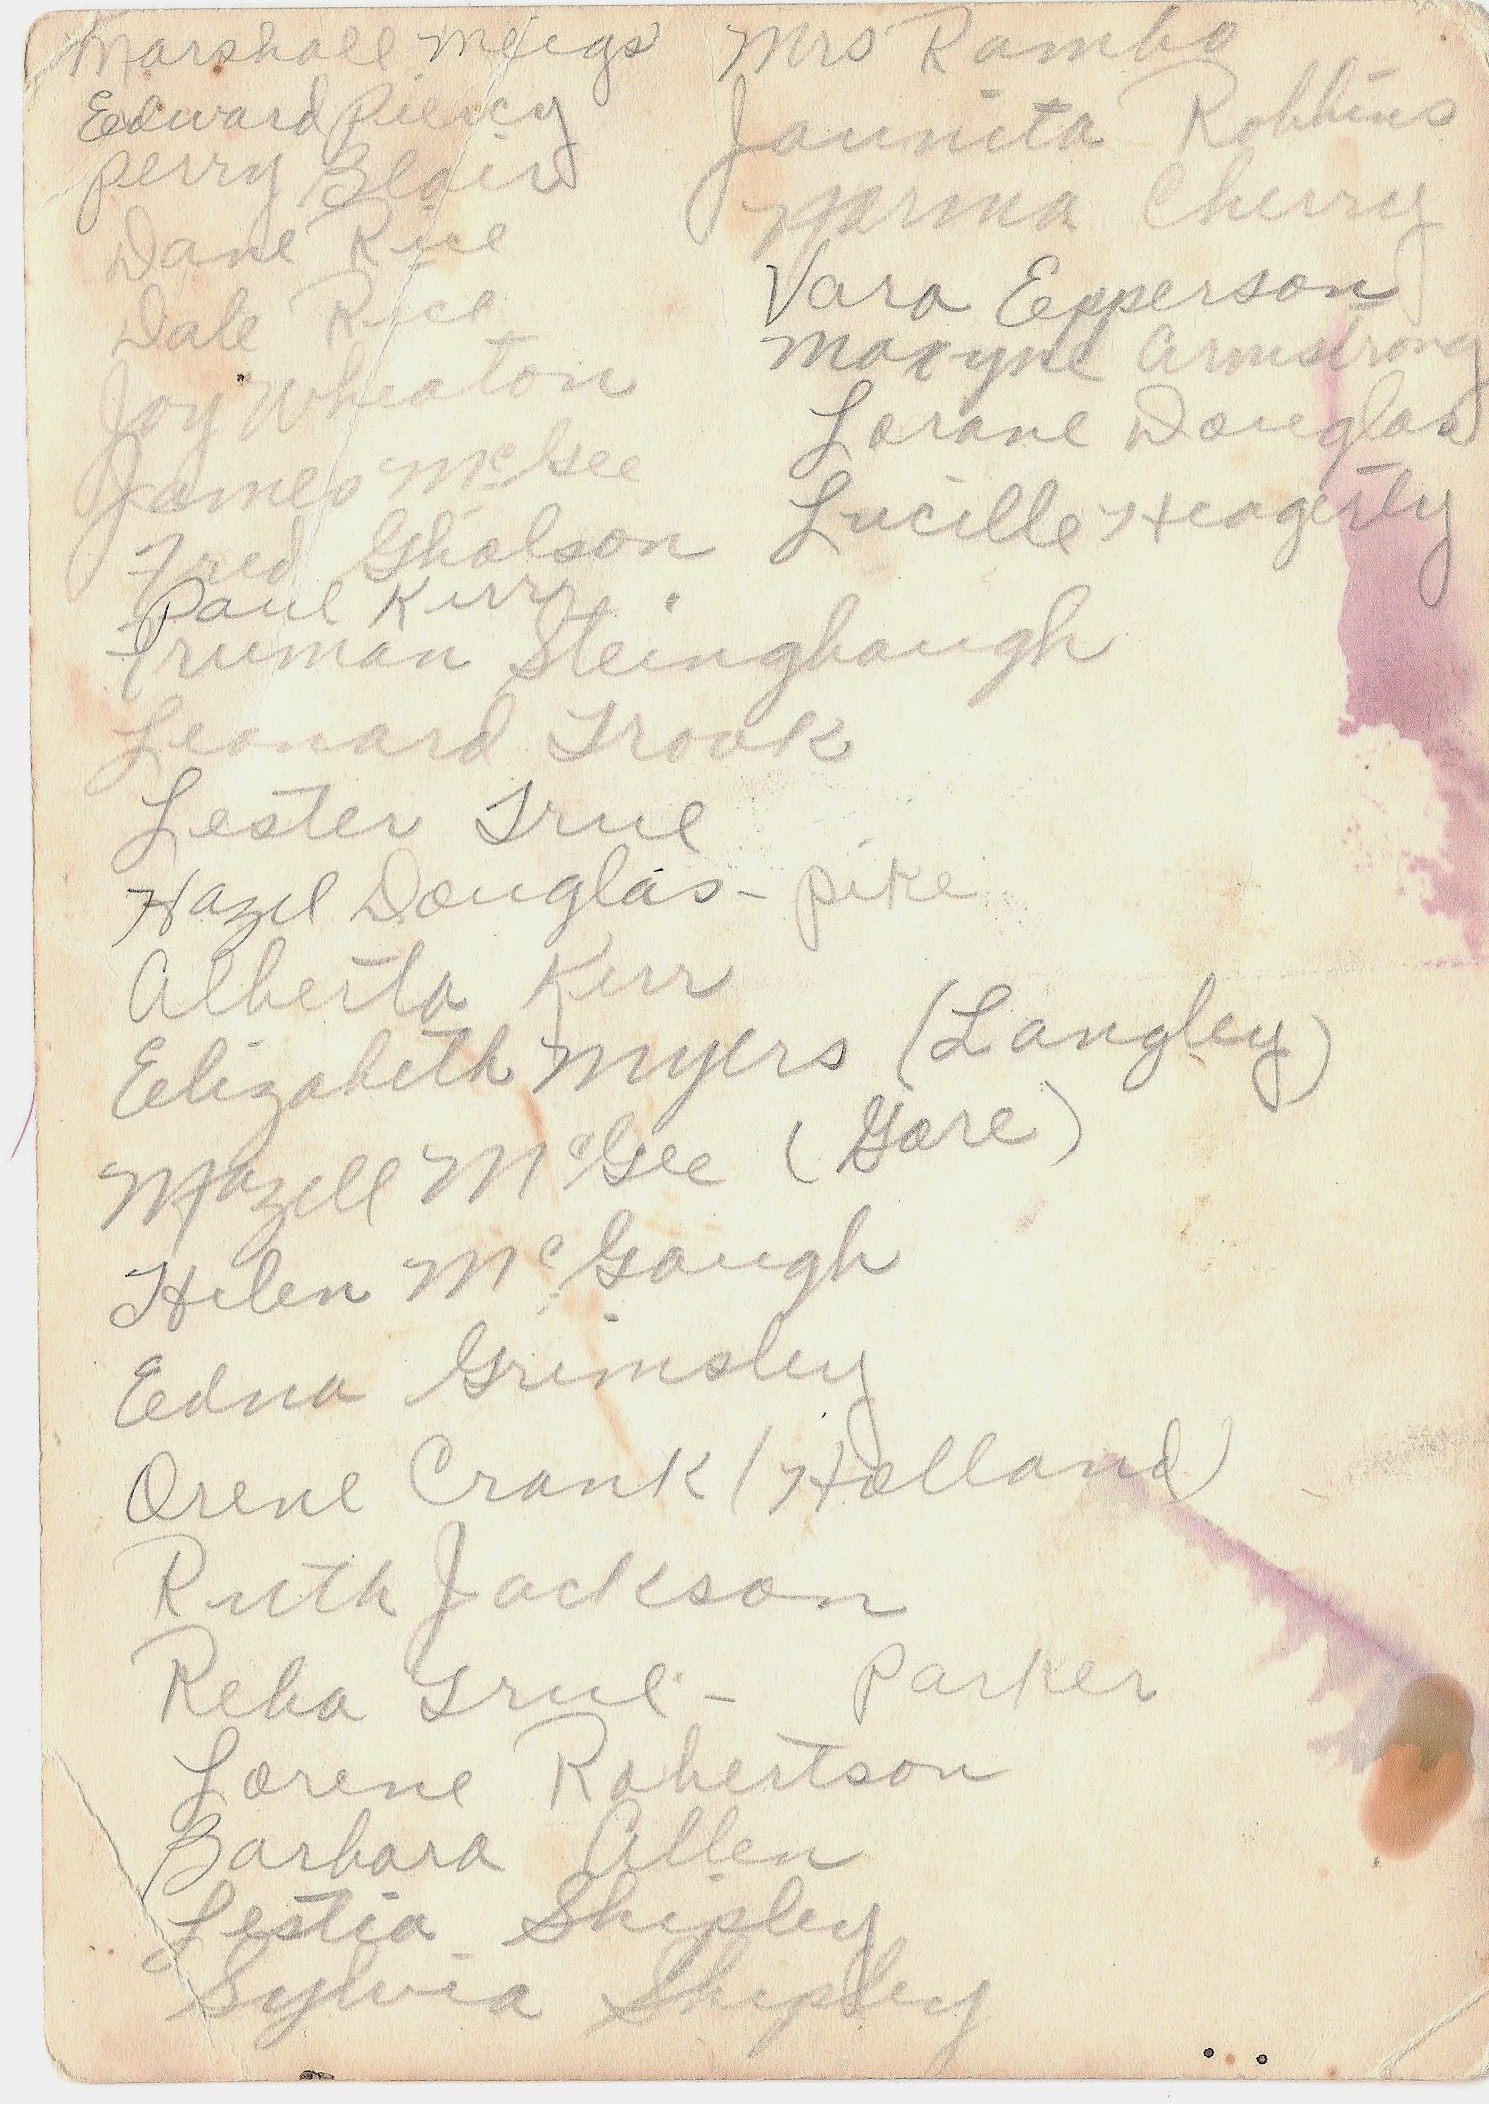 Marshall Meigs
Edward Piercy
Perry Blair
Dane Rice
Dale Rice
Joy Wheaton
James McGee
Fred Gholson
Paul Kerr
Truman Steinghaugh
Leonard Trook
Lester True
Hazel Douglas - Pike
Alberta Kerr
Elizabeth Myers (Langley)
Mazell McGee (Gore)
Helen McGaugh
Edna Grimsley
Orene Crank (Holland)
Ruth Jackson
Reba True - Parker
Lorene Robertson
Barbara Allen
Lestia Shipley
Sylvia Shipley
Mrs Rambo
Jaunita Robbins
Norma Cherry
Vara Epperson
Maxyne Armstrong
Lorane Douglas
Lucille Heagerty